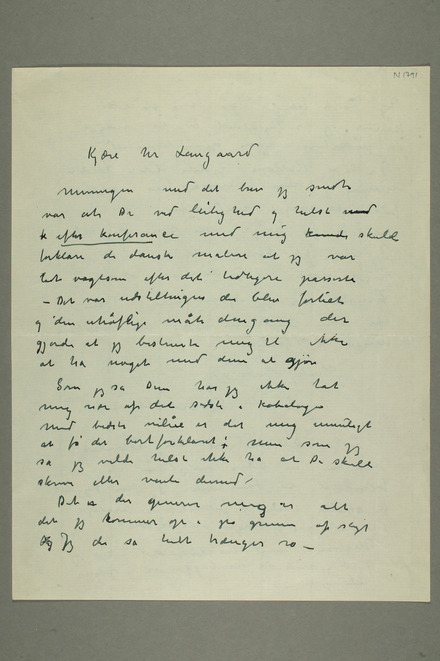 N 1791
Kjære Hr Langaard
Meningen med det brev jeg sendte
var at De ved leilighed og helst
efter konferance med mig skulde
forklare de danske malere at jeg var
lidt vagtsom efter det tidligere passerte
– Det var udstillingen der blev fortiet
og den uhøflige måte dengang der
gjorde at jeg bestemte mig til ikke
at ha noget med dem at gjøre
Som jeg sa Dem har jeg ikke tat
mig nær af det sidste i Kataloget
med bedste vilje er det mig umuligt
at få det bortforklaret; men som jeg
sa jeg vilde helst ikke ha at De skulde
skrive eller
Det er der generer mig er alt
det jeg kommer op i på grund af sligt
Jeg der så helt trænger ro –